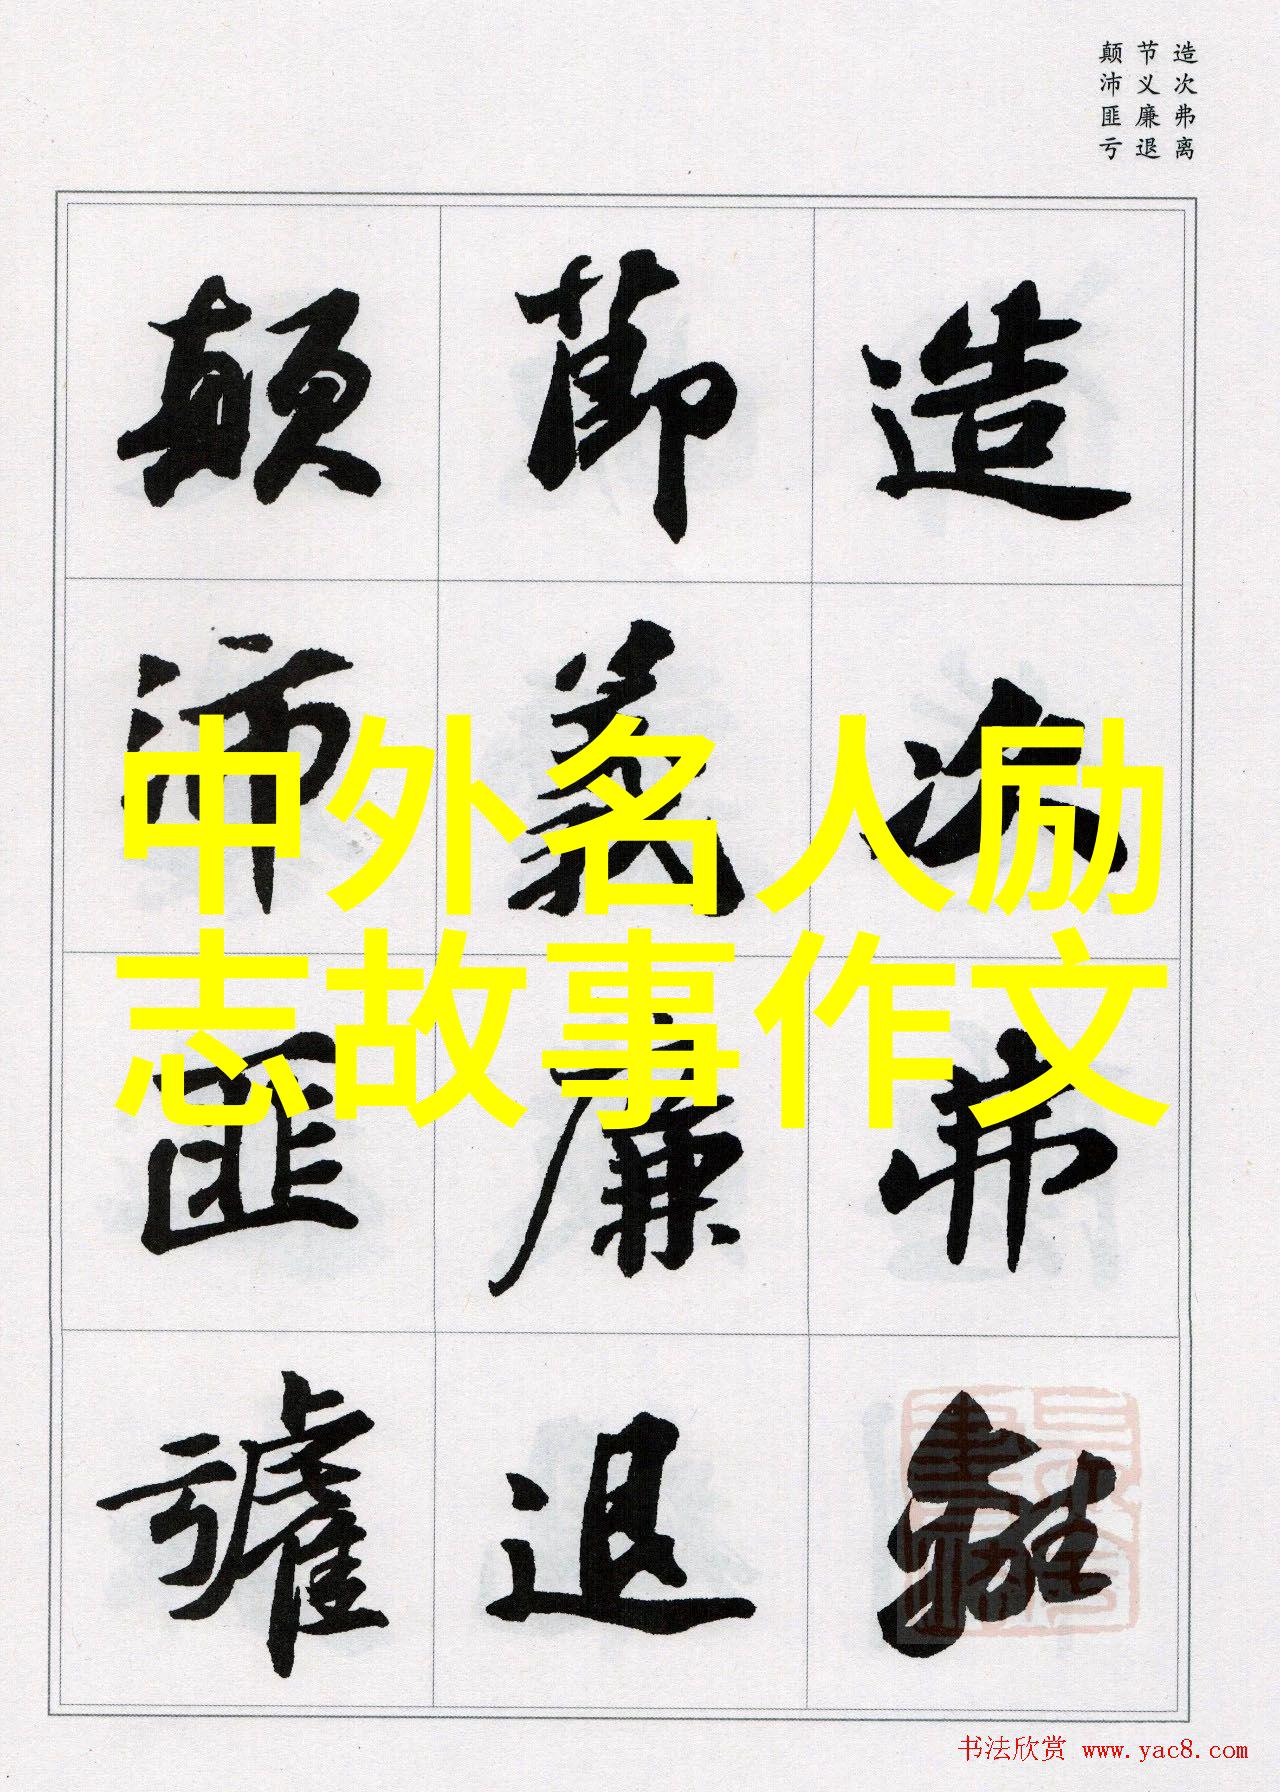 造次弗离
节义廉退
颠沛匪亏
造次弗離
節義廉退
顛沛匪虧
中外名人励
志故事作文
书法欣赏 www.yac8.com